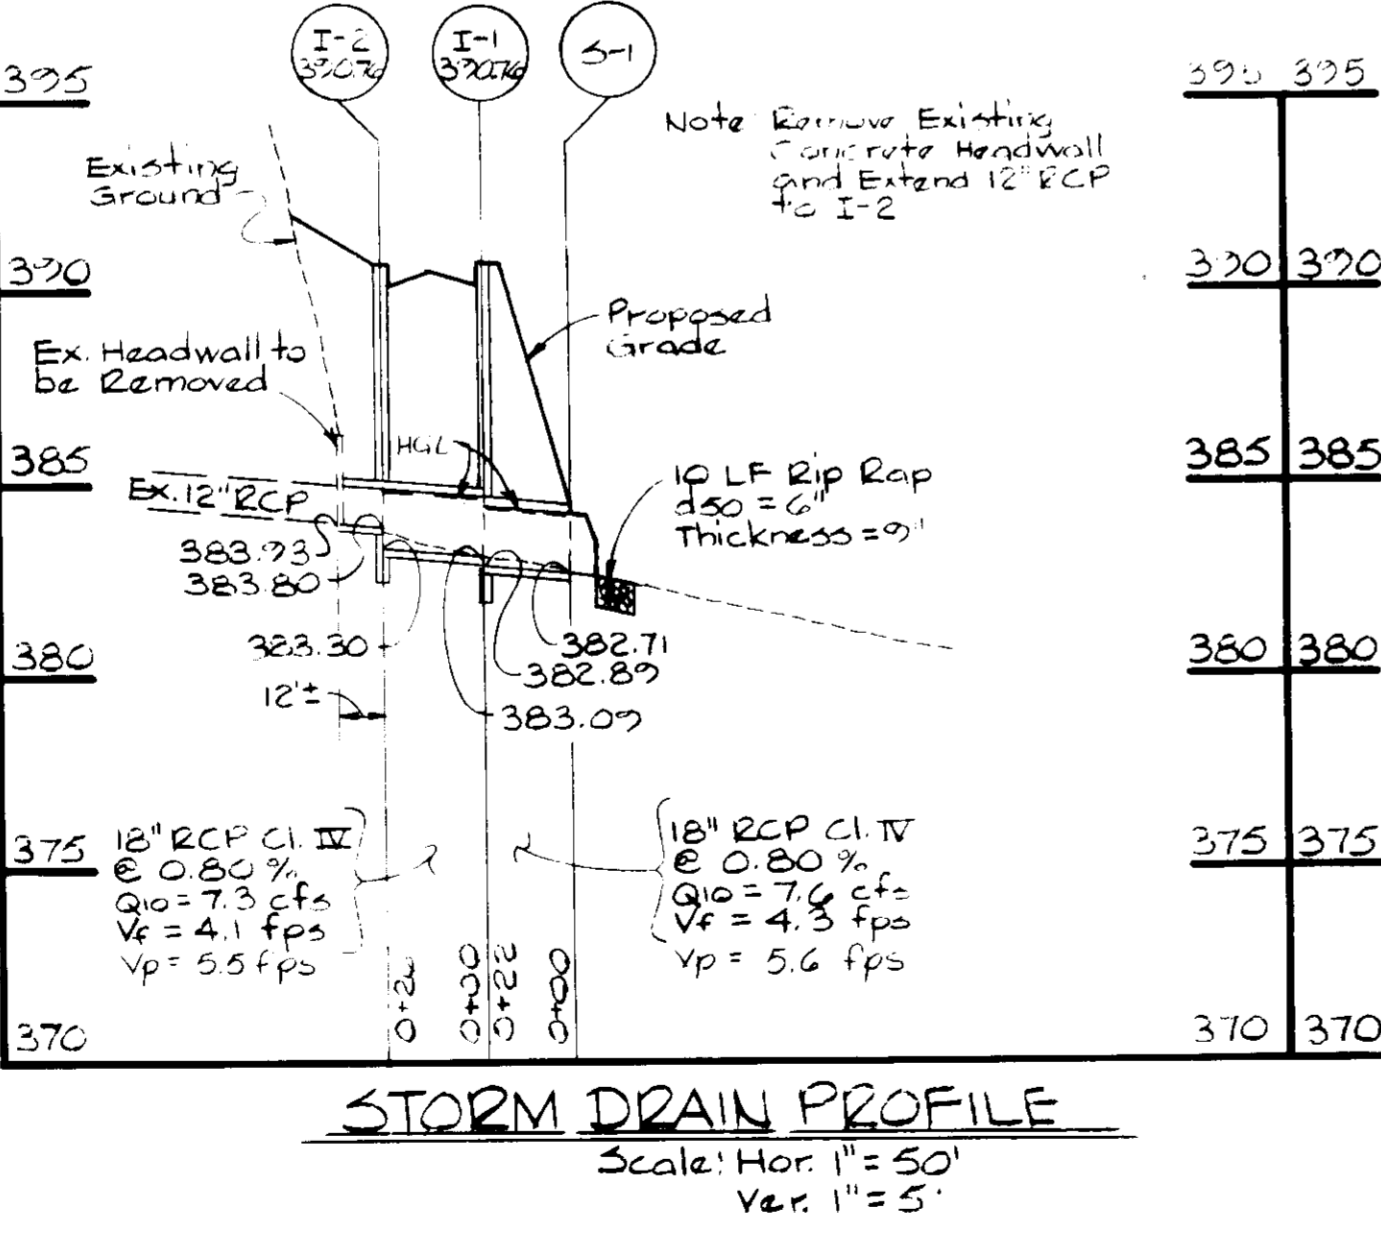 I-2
390.76
I-1
390.76
S-1
395
395 395
Note Remove Existing
Concrete Headwall
and Extend 12" RCP
to I-2
Existing
Ground
390
390 390
Proposed
Grade
Ex. Headwall to
be Removed
HGL
385
385 385
10 LF Rip Rap
d50 = 6"
Thickness = 9"
Ex. 12" RCP
383.93
383.80
383.30
382.71
382.89
383.09
12'±
380
380 380
18" RCP Cl. IV
@ 0.80 %
Q10 = 7.3 cfs
Vf = 4.1 fps
Vp = 5.5 fps
18" RCP Cl. IV
@ 0.80 %
Q10 = 7.6 cfs
Vf = 4.3 fps
Vp = 5.6 fps
375
375 375
0+22
0+00
370
370 370
STORM DRAIN PROFILE
Scale: Hor. 1" = 50'
Ver. 1" = 5'